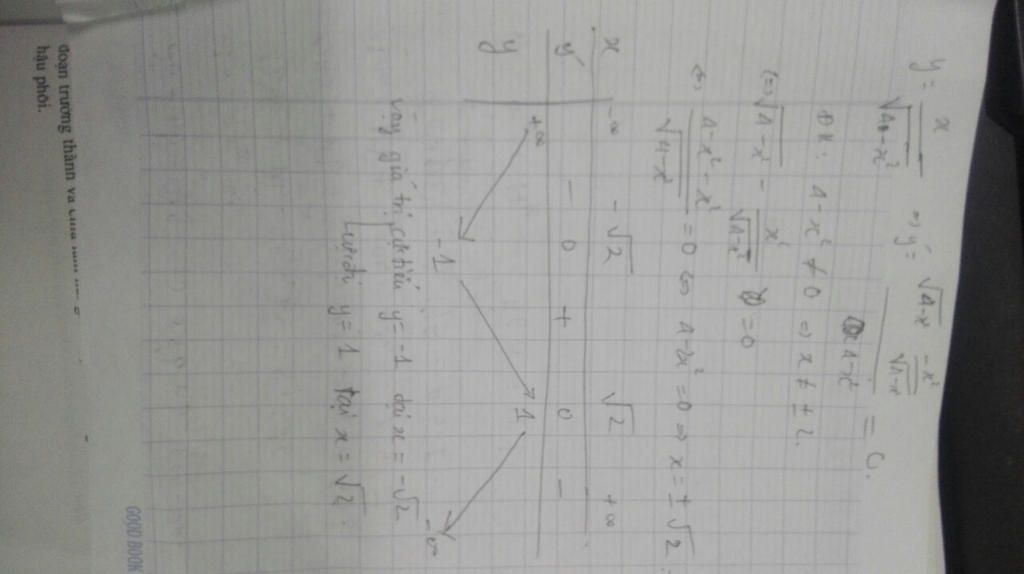 y = x / √(4-x²) ⇒ y' = (√(4-x²) - -x²/√(4-x²)) / (4-x²) = 0.
ĐK: 4-x² ≠ 0 ⇒ x ≠ ± 2.
(⇔) √(4-x²) - x²/√(4-x²) = 0
⇔ (4-x²-x²)/√(4-x²) = 0 ⇔ 4-2x² = 0 ⇒ x = ± √2
x -∞ -√2 √2 +∞
y' - 0 + 0 -
y +∞ -1 1 -∞
Vậy giá trị cực tiểu y = -1 tại x = -√2
cực đại y = 1 tại x = √2.
đoạn trưởng thành và
hậu phôi.
GOOD BOOK